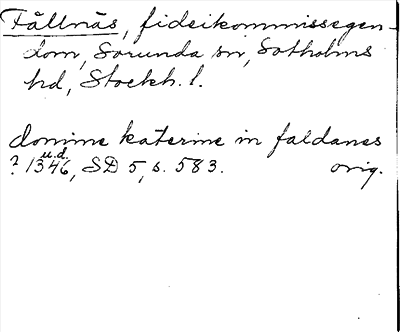 Fållnäs, fideikommissegen-
dom, Sorunda sn, Sotholms
hd, Stockh. l.
domine katerine in faldanes
u.d.
? 1346, SD 5, s. 583. orig.